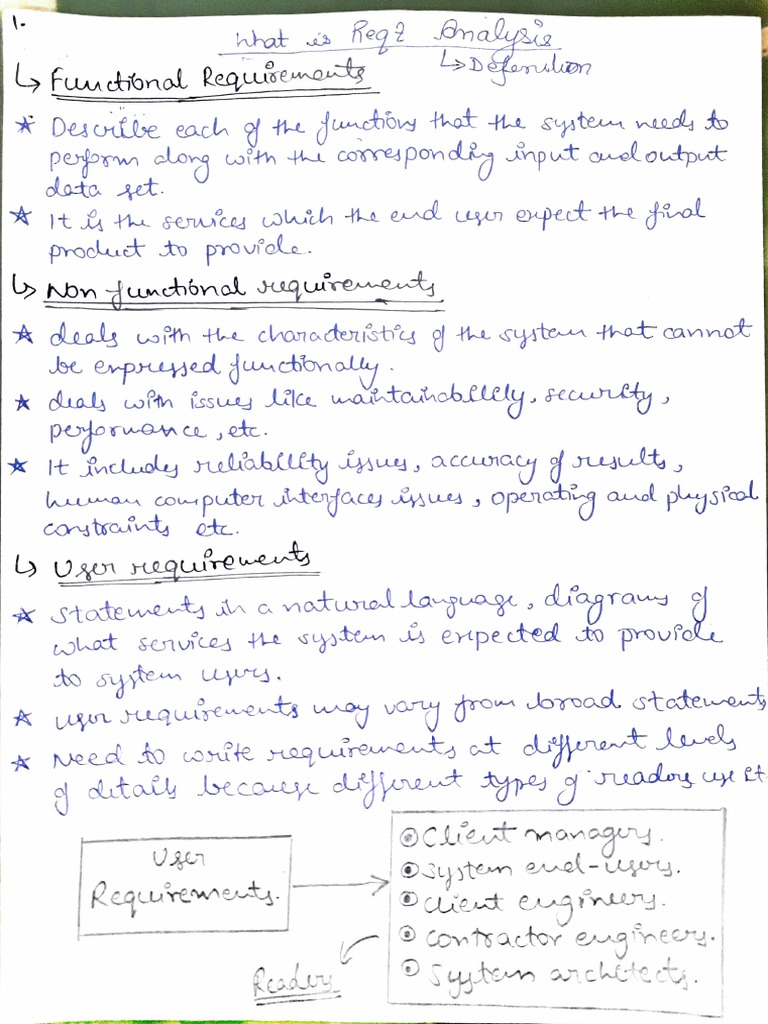 1.
What is Req? Analysis
↳ Defenition
↳ Functional Requirements
☆ Describe each of the functions that the system needs to
perform along with the corresponding input and output
data set.
☆ It is the services which the end user expect the final
product to provide.
↳ Non functional requirements
☆ deals with the characteristics of the system that cannot
be expressed functionally.
☆ deals with issues like maintainability, security,
performance, etc.
☆ It includes reliability issues, accuracy of results,
human computer interfaces issues, operating and physical
constraints etc.
↳ User requirements
☆ statements in a natural language, diagrams of
what services the system is expected to provide
to system users.
☆ user requirements may vary from broad statements
☆ Need to write requirements at different levels
of details because different types of readers use it
User
Requirements.
⦿ Client managers.
⦿ System end-users.
⦿ client engineers.
⦿ contractor engineers.
⦿ System architects.
Readers